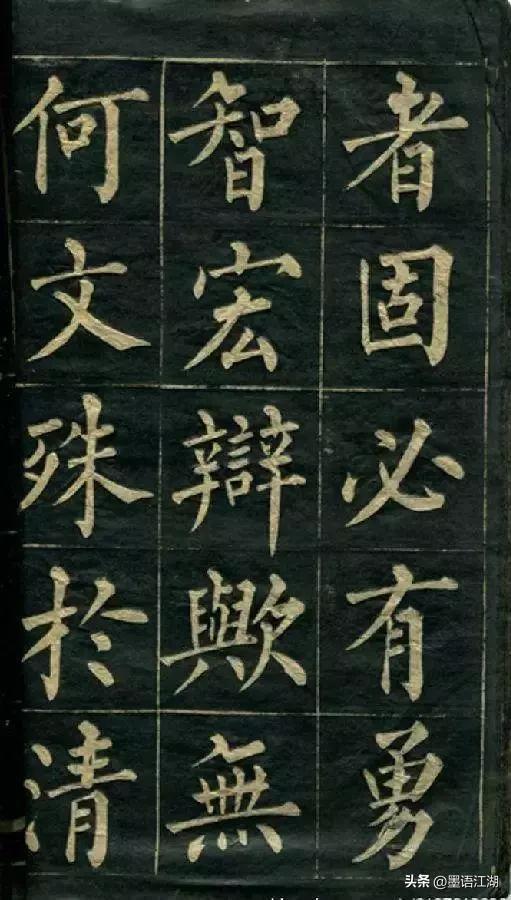 者固必有勇
智宏辯歟無
何文殊於清
头条 @墨语江湖